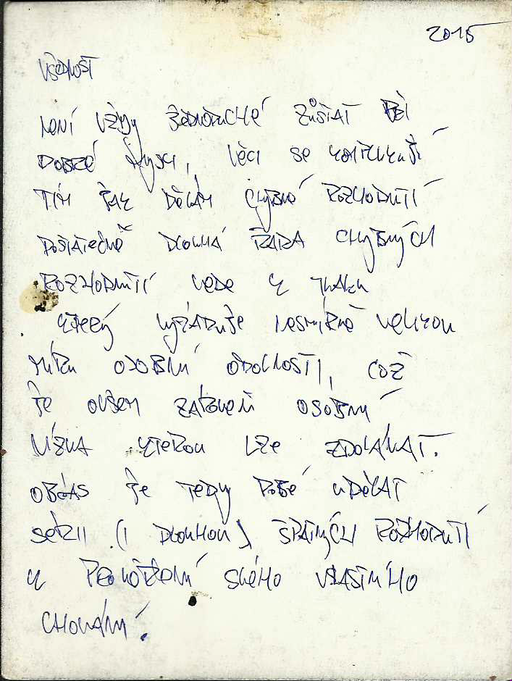 2015
VŠEDNOST
NENÍ VŽDY JEDNODUCHÉ ZŮSTAT BÝT
DOBRÉ MYSLI, VĚCI SE KOMPLIKUJÍ
TÍM JAK DĚLÁM CHYBNÁ ROZHODNUTÍ
DOSTATEČNĚ DLOUHÁ ŘADA CHYBNÝCH
ROZHODNUTÍ VEDE K TLAKU
KTERÝ VYŽADUJE NESMÍRNĚ VELIKOU
MÍRU OSOBNÍ ODOLNOSTI, COŽ
JE OVŠEM ZÁROVEŇ OSOBNÍ
VÝZVA KTEROU LZE ZDOLÁVAT.
OBČAS JE TEDY DOBŘE UDĚLAT
SÉRII (I DLOUHOU) ŠPATNÝCH ROZHODNUTÍ
K SVÉHO VLASTNÍHO
CHOVÁNÍ.